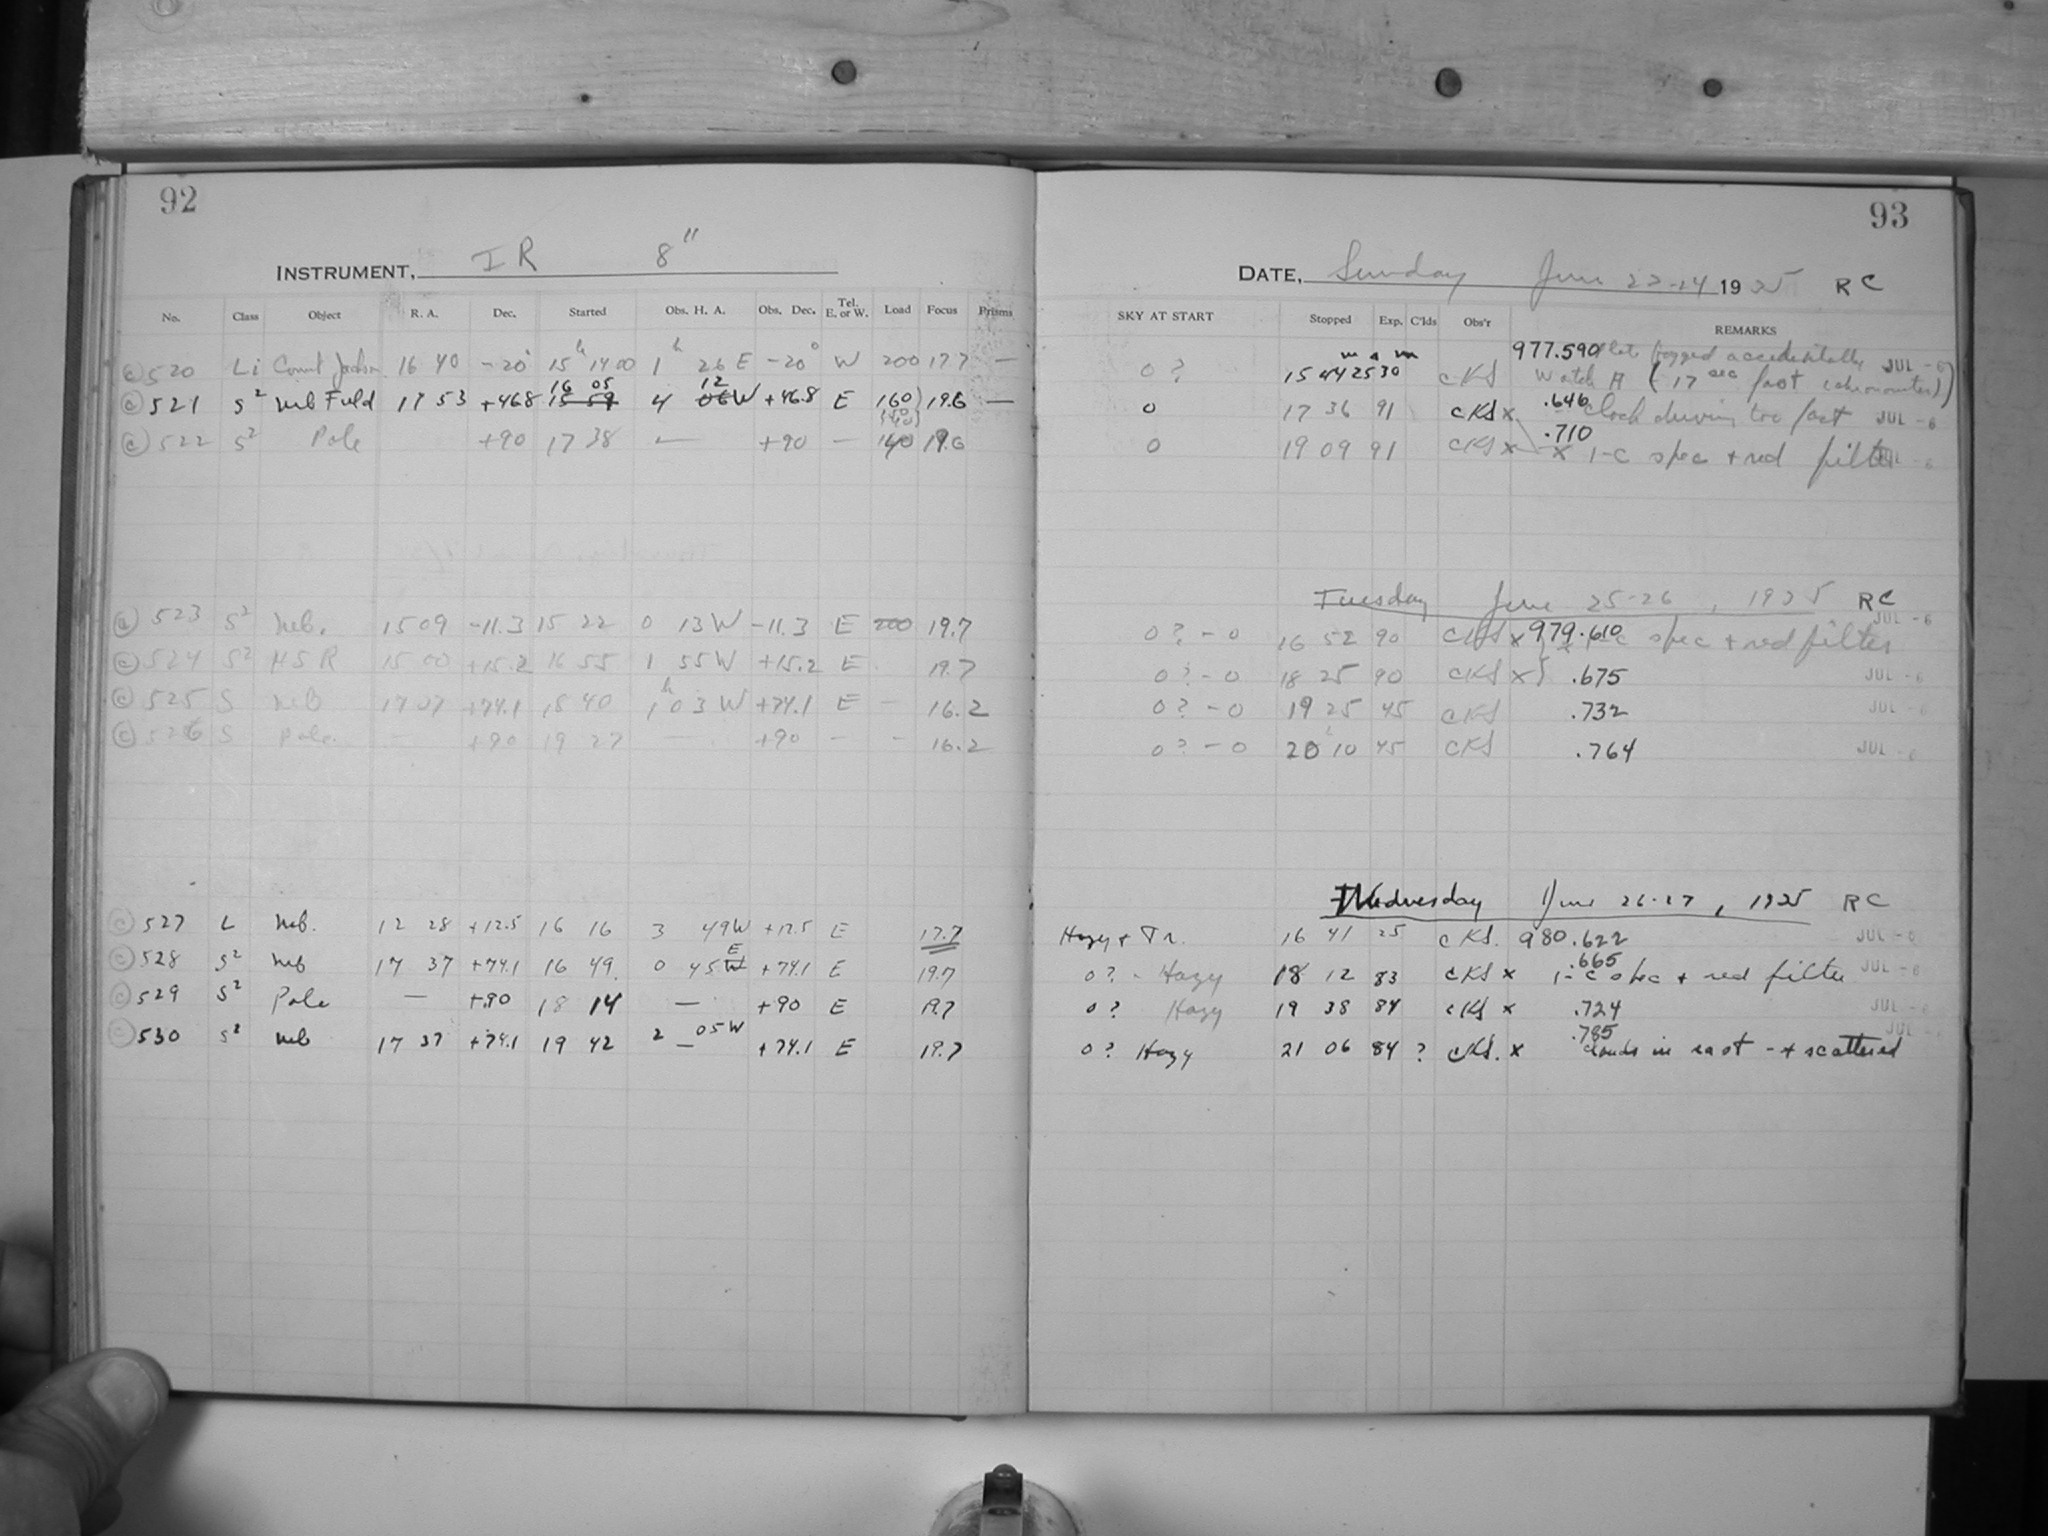 92
INSTRUMENT, IR 8"
No. Class Object R. A. Dec. Started Obs. H. A. Obs. Dec. Tel. E. or W. Load Focus Prisms
520 Li 16 40 -20° 15ʰ 14 00 1ʰ 26 E -20° W 200 17.7 —
521 S² neb Field 17 53 +46.8 16 05 15 59 4 12 06 W +46.8 E 160 19.6 —
522 S² Pole +90 17 38 — +90 — 140 19.6
523 S² neb. 15 09 -11.3 15 22 0 13 W -11.3 E 200 19.7
524 S² HSR 15 00 +15.2 16 55 1 55 W +15.2 E 19.7
525 S neb 17 37 +74.1 18 40 1ʰ 03 W +74.1 E — 16.2
526 S Pole. — +90 19 27 — +90 — — 16.2
527 L neb. 12 28 +12.5 16 16 3 49 W +12.5 E 17.7
528 S² neb 17 37 +74.1 16 49 0 45 E W +74.1 E 19.7
529 S² Pole — +90 18 14 — +90 E 19.7
530 S² neb 17 37 +74.1 19 42 2 — 05 W +74.1 E 19.7
93
DATE, Sunday June 1925 RC
SKY AT START Stopped Exp. C'lds Obs'r REMARKS
0? 15 44 25 30 CKS 977.590 Plate fogged accidentally JUL -6
Watch A (-17 sec fast chronometer)
0 17 36 91 CKS x .646 Clock driving too fast JUL -6
0 19 09 91 CKS x .710 x 1-C spec + red filter JUL -6
Tuesday June 25-26, 1925 RC
0? - 0 16 52 90 CKS x 979.610 spec + red filter JUL -6
0? - 0 18 25 90 CKS x .675 JUL -6
0? - 0 19 25 45 CKS .732 JUL -6
0? - 0 20 10 45 CKS .764 JUL -6
Wednesday June 26-27, 1925 RC
Hazy + Tr. 16 41 25 CKS. 980.622 JUL -6
0? - Hazy 18 12 83 CKS x .665 1-C spec + red filter JUL -6
0? Hazy 19 38 84 CKS x .724 JUL -6
0? Hazy 21 06 84 ? CKS. x .785 clouds in east -+ scattered JUL -